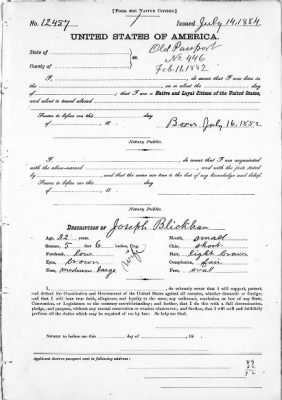 [FORM FOR NATIVE CITIZEN.]
No. 12457 Issued July 14, 1884.
UNITED STATES OF AMERICA.
STATE OF Old Passport
ss. No 446
COUNTY OF Feb. 11, 1882
I, , do swear that I was born in
the , on or about the day
of , that I am a Native and Loyal Citizen of the United States,
and about to travel abroad
Sworn to before me this day
of 18 . Born July 16, 1852
Notary Public.
I, , do swear that I am acquainted
with the above-named , and with the facts stated
by , and that the same are true to the best of my knowledge and belief.
Sworn to before me this day
of 18 .
Notary Public.
DESCRIPTION OF Joseph Blickhan
Age, 32 years. Mouth, small
Stature, 5 feet 6 inches, Eng. Chin, short
Forehead, low Hair, light brown
Eyes, brown Complexion, fair
Nose, medium large Face, oval
I, , do solemnly swear that I will support, protect,
and defend the Constitution and Government of the United States against all enemies, whether domestic or foreign;
and that I will bear true faith, allegiance, and loyalty to the same, any ordinance, resolution, or law of any State,
Convention, or Legislature to the contrary notwithstanding; and further, that I do this with a full determination,
pledge, and purpose, without any mental reservation or evasion whatsoever; and further, that I will well and faithfully
perform all the duties which may be required of me by law: So help me God.
Sworn to before me this day of , 18 .
Applicant desires passport sent to following address: